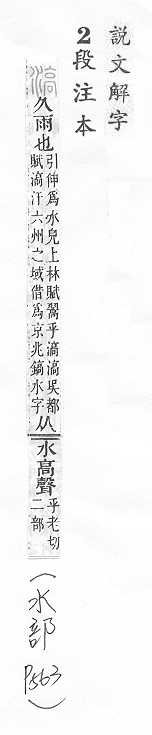 說文解字
2段注本
滈
久雨也
引伸爲水皃上林賦翯乎滈滈吳都
賦滈汗六州之域借爲京兆鎬水字
从水高聲
乎老切
二部
(水部
P563)